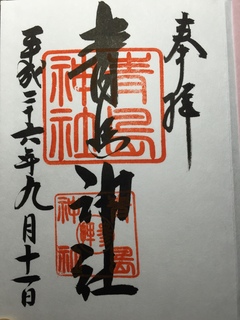 奉拝
青島神社
青島神社
平成二十六年九月十一日